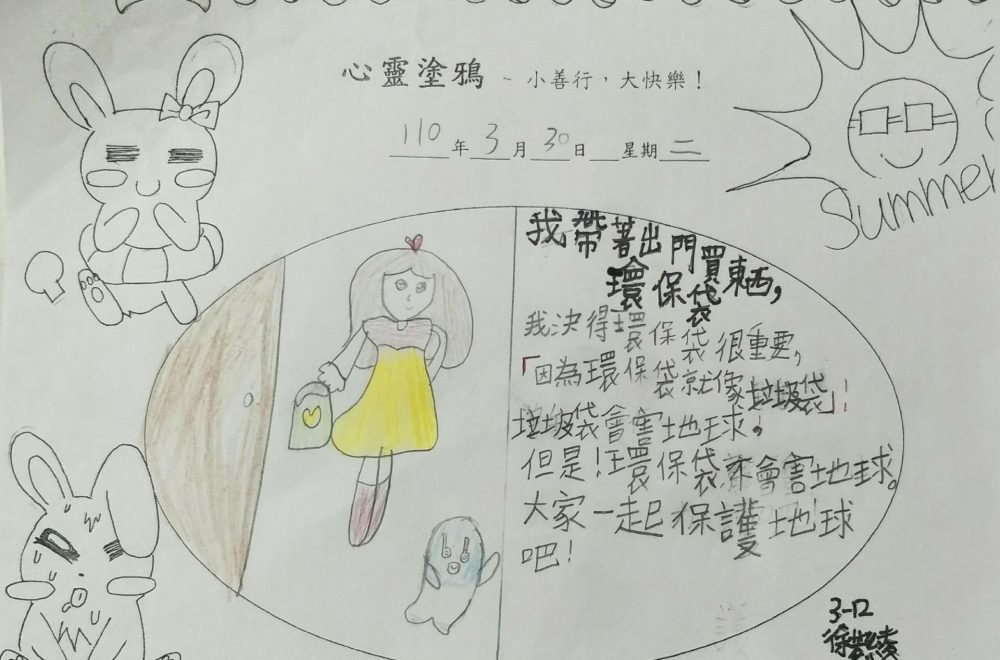 心靈塗鴉 ~ 小善行，大快樂！
110年3月30日 星期二
Summer
我帶著出門買東西，
環保袋
我決得環保袋很重要，
「因為環保袋就像垃圾袋」！
垃圾袋會害地球，
但是！環保袋不會害地球。
大家一起保護地球
吧！
3-12